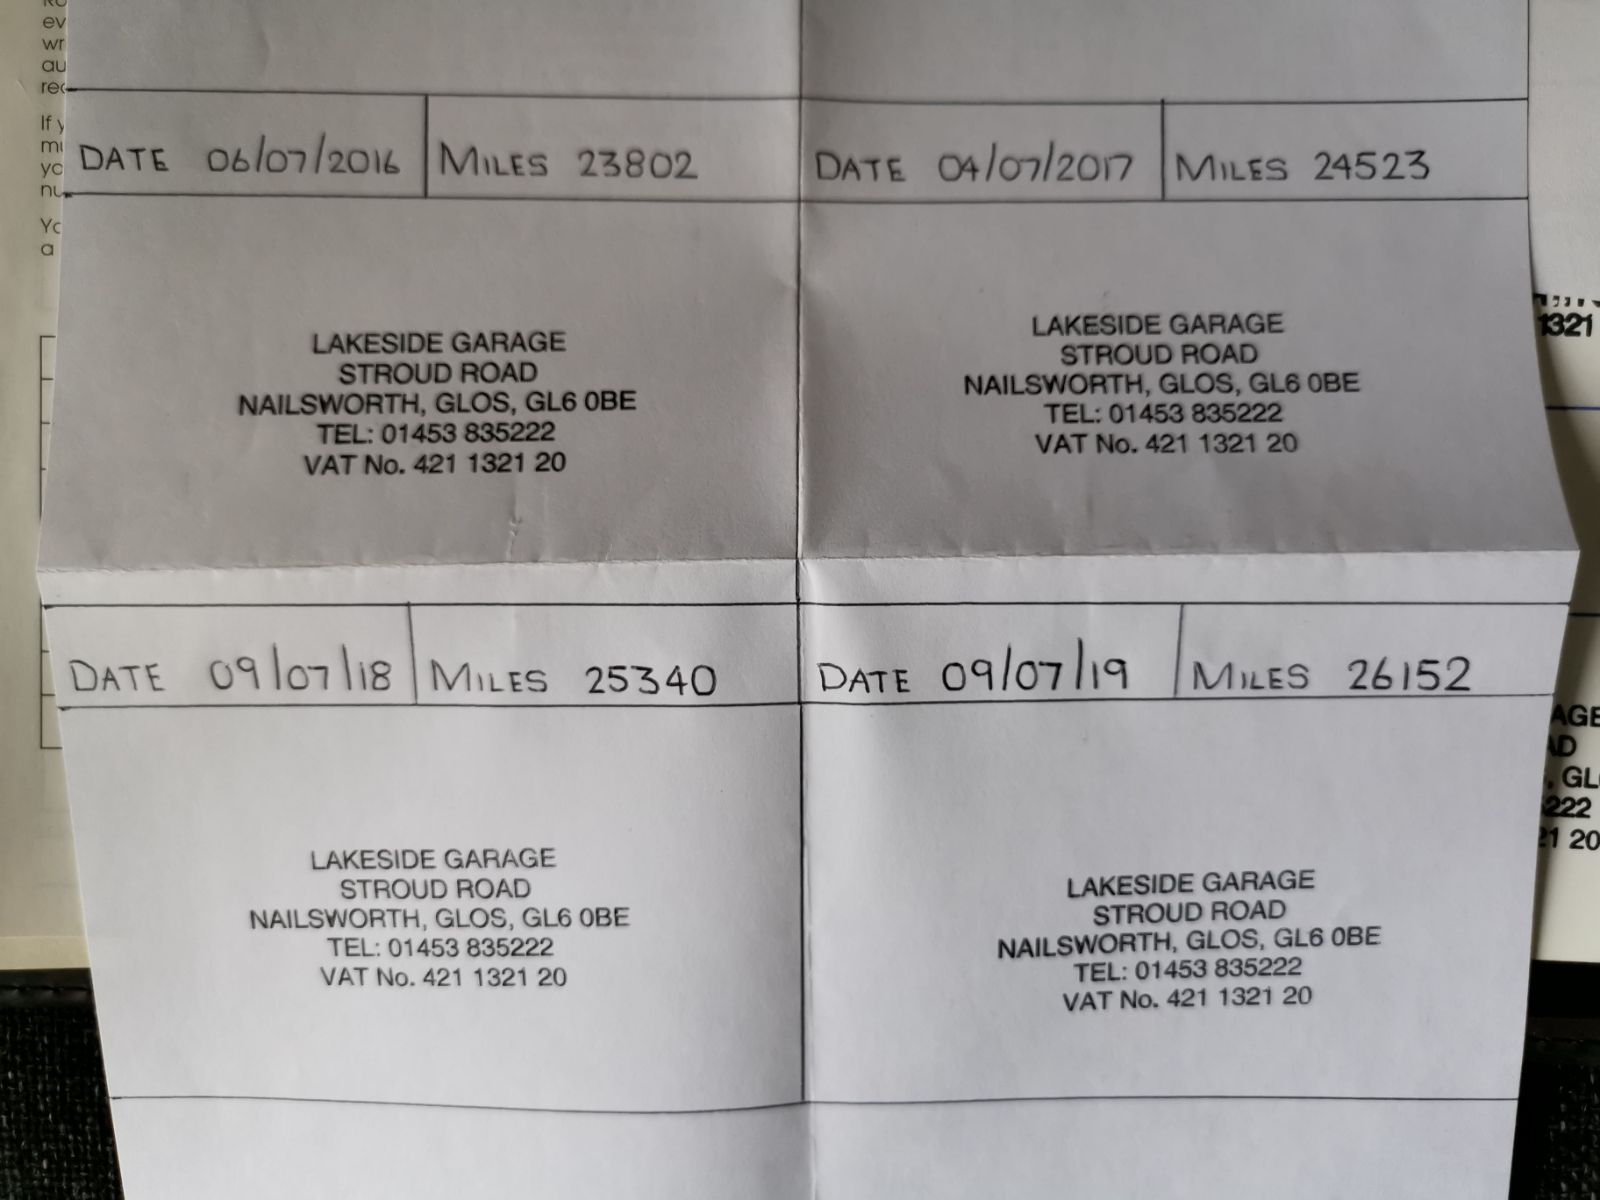 ev
wr
au
rec
If y
mu
yo
nu
Yo
a
DATE 06/07/2016 MILES 23802
DATE 04/07/2017 MILES 24523
LAKESIDE GARAGE
STROUD ROAD
NAILSWORTH, GLOS, GL6 0BE
TEL: 01453 835222
VAT No. 421 1321 20
LAKESIDE GARAGE
STROUD ROAD
NAILSWORTH, GLOS, GL6 0BE
TEL: 01453 835222
VAT No. 421 1321 20
1321
DATE 09/07/18 MILES 25340
DATE 09/07/19 MILES 26152
LAKESIDE GARAGE
STROUD ROAD
NAILSWORTH, GLOS, GL6 0BE
TEL: 01453 835222
VAT No. 421 1321 20
LAKESIDE GARAGE
STROUD ROAD
NAILSWORTH, GLOS, GL6 0BE
TEL: 01453 835222
VAT No. 421 1321 20
AGE
AD
, GL
222
21 20